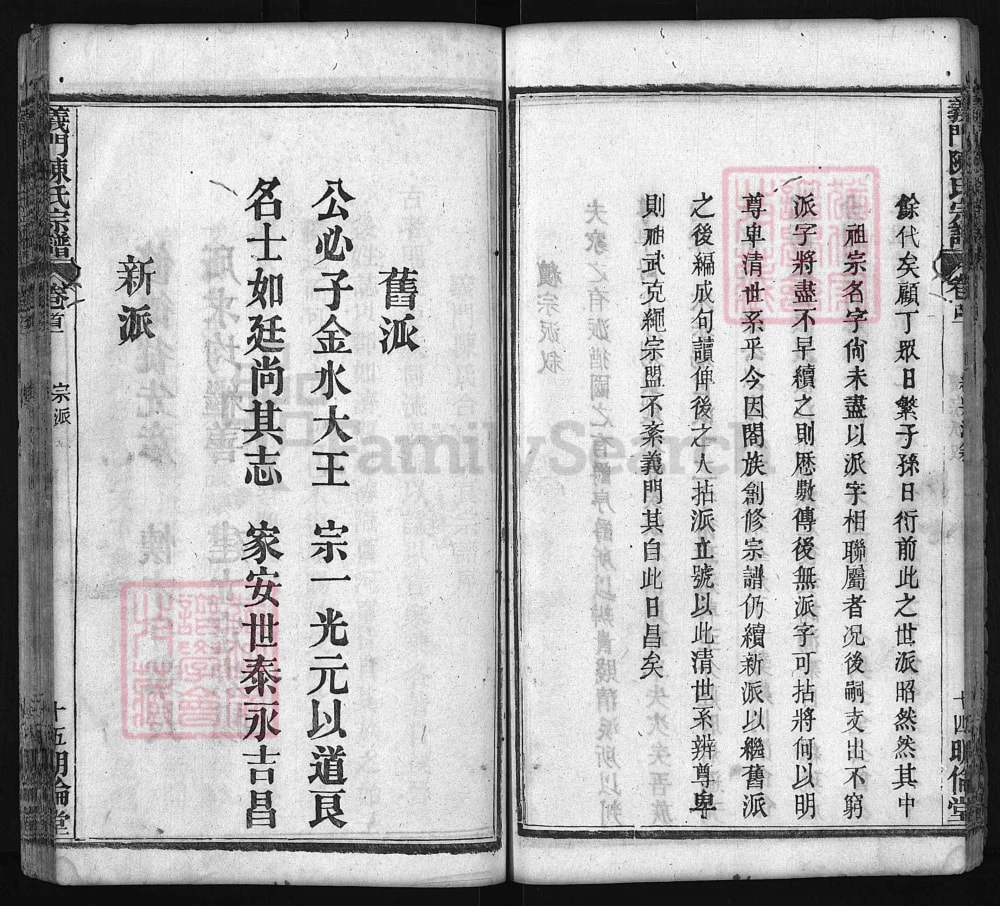 義門陳氏宗譜
卷首
十四
明倫堂
餘代矣顧丁眾日繁子孫日衍前此之世派昭然然其中
祖宗名字尙未盡以派字相聯屬者况後嗣支出不窮
派字將盡不早續之則厯數傳後無派字可拈將何以明
尊卑清世系乎今因闔族創修宗譜仍續新派以繼舊派
之後編成句讀俾後之人拈派立號以此清世系辨尊卑
則祖武克繩宗盟不紊義門其自此日昌矣
舊派
公必子金水大王 宗一光元以道良
名士如廷尚其志 家安世泰永吉昌
新派
義門陳氏宗譜
卷首
宗派
十五
明倫堂
FamilySearch